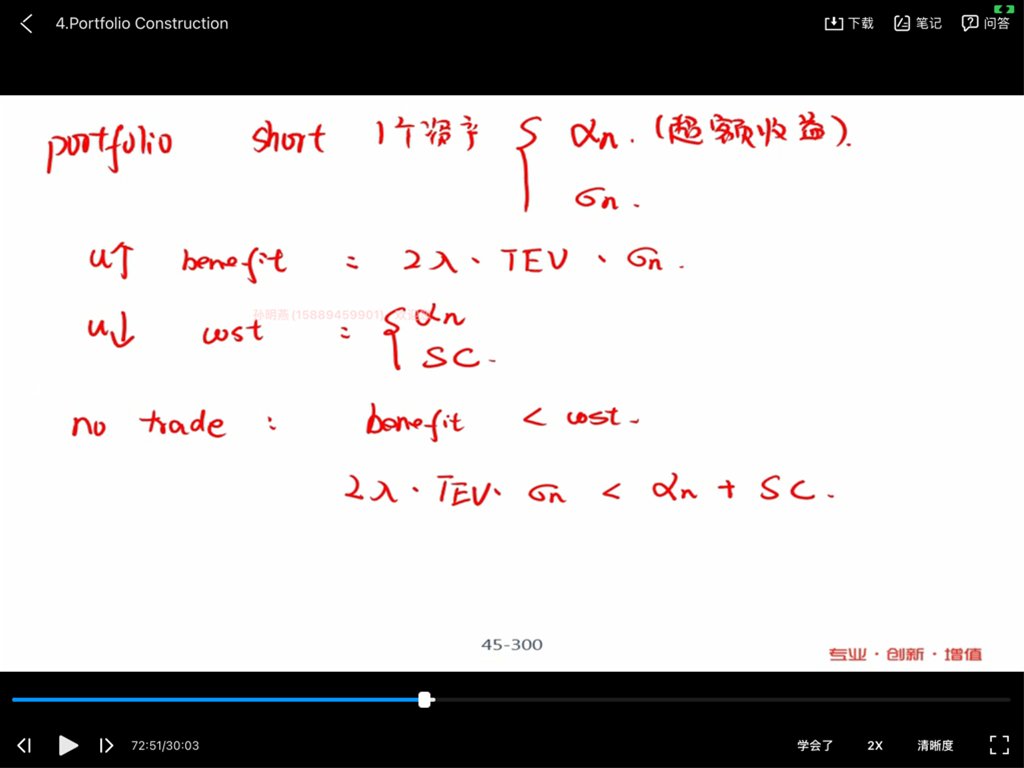 4.Portfolio Construction
下载 笔记 问答
portfolio short 1个资产 { αn. (超额收益).
σn.
u↑ benefit = 2λ · TEV · σn.
孙明燕(15889459901)
u↓ cost = { αn
SC.
no trade : benefit < cost.
2λ · TEV · σn < αn + SC.
45-300
专业 · 创新 · 增值
72:51/30:03 学会了 2X 清晰度